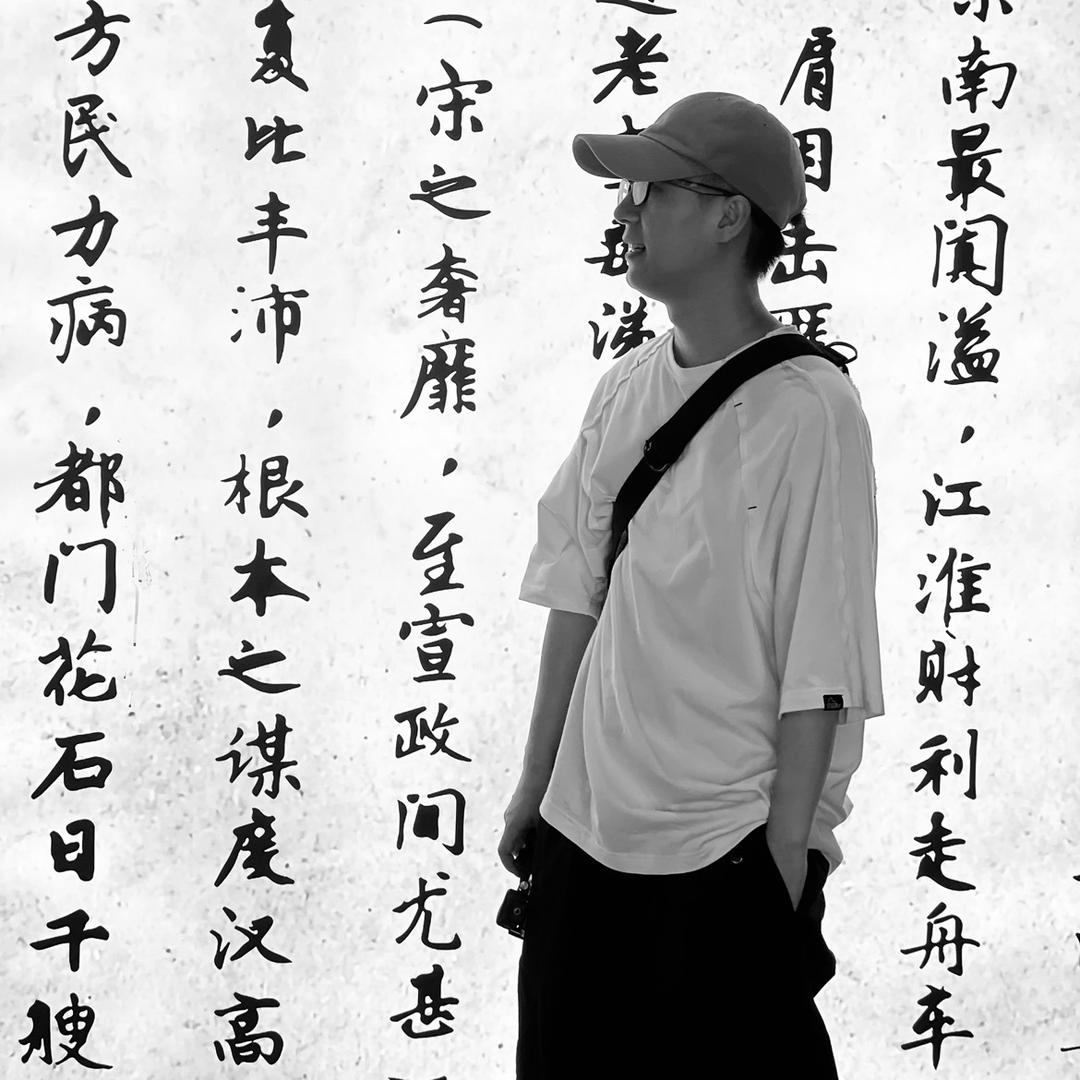 南最阗溢，江淮财利走舟车
眉目击
老
一宋之奢靡，至宣政间尤甚
复比丰沛，根本之谋度汉高
方民力病，都门花石日千艘